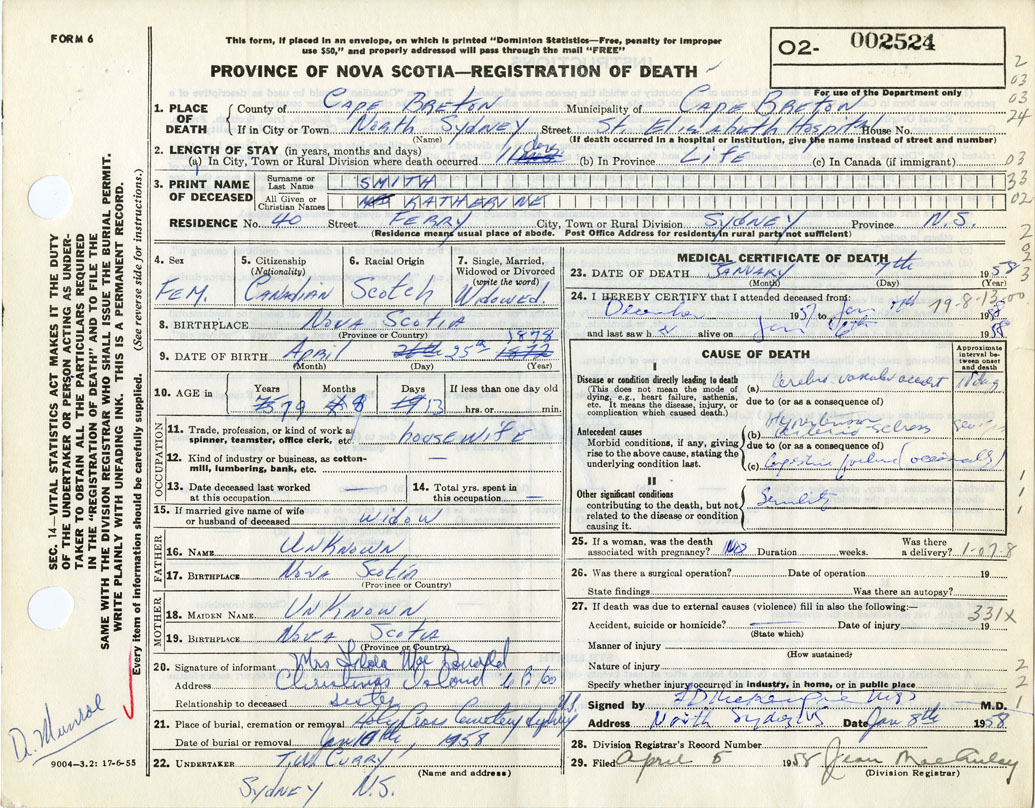 FORM 6
This form, if placed in an envelope, on which is printed "Dominion Statistics—Free, penalty for improper
use $50," and properly addressed will pass through the mail "FREE"
O2- 002524
PROVINCE OF NOVA SCOTIA—REGISTRATION OF DEATH
For use of the Department only
1. PLACE OF DEATH County of CAPE BRETON Municipality of CAPE BRETON
If in City or Town NORTH SYDNEY Street ST. Elizabeth Hospital House No.
(Name) (If death occurred in a hospital or institution, give the name instead of street and number)
2. LENGTH OF STAY (in years, months and days)
(a) In City, Town or Rural Division where death occurred 11 days (b) In Province LIFE (c) In Canada (if immigrant)
3. PRINT NAME OF DECEASED Surname or Last Name SMITH
All Given or Christian Names KATHERINE
RESIDENCE No. 40 Street FERRY City, Town or Rural Division SYDNEY Province N.S.
(Residence means usual place of abode. Post Office Address for residents in rural party not sufficient)
4. Sex FEM.
5. Citizenship (Nationality) Canadian
6. Racial Origin Scotch
7. Single, Married, Widowed or Divorced (write the word) Widowed.
8. BIRTHPLACE NOVA SCOTIA
(Province or Country)
9. DATE OF BIRTH April 25th 1878
(Month) (Day) (Year)
10. AGE in Years 79 Months 8 Days 13 If less than one day old
hrs. or min.
OCCUPATION
11. Trade, profession, or kind of work as spinner, teamster, office clerk, etc. housewife
12. Kind of industry or business, as cotton-mill, lumbering, bank, etc. —
13. Date deceased last worked at this occupation —
14. Total yrs. spent in this occupation —
15. If married give name of wife or husband of deceased widow
FATHER
16. NAME UNKNOWN
17. BIRTHPLACE NOVA SCOTIA
(Province or Country)
MOTHER
18. MAIDEN NAME UNKNOWN
19. BIRTHPLACE NOVA SCOTIA
(Province or Country)
20. Signature of informant Mrs
Address Christmas Island
Relationship to deceased sister
21. Place of burial, cremation or removal Holy Cross Cemetery Sydney N.S.
Date of burial or removal Jan 1958
22. UNDERTAKER T.W. CURRY
(Name and address)
SYDNEY N.S.
MEDICAL CERTIFICATE OF DEATH
23. DATE OF DEATH JANUARY 7th 1958
(Month) (Day) (Year)
24. I HEREBY CERTIFY that I attended deceased from:
December 1957 to Jan 1958
and last saw her alive on Jan 1958
CAUSE OF DEATH
Approximate interval between onset and death
I
Disease or condition directly leading to death
(This does not mean the mode of dying, e.g., heart failure, asthenia, etc. It means the disease, injury, or complication which caused death.)
(a) Cerebro vascular accident
due to (or as a consequence of)
Antecedent causes
Morbid conditions, if any, giving rise to the above cause, stating the underlying condition last.
(b)
due to (or as a consequence of)
(c)
II
Other significant conditions
contributing to the death, but not related to the disease or condition causing it.
Senility
25. If a woman, was the death associated with pregnancy? No Duration weeks. Was there a delivery?
26. Was there a surgical operation? Date of operation 19
State findings Was there an autopsy?
27. If death was due to external causes (violence) fill in also the following:—
331X
Accident, suicide or homicide? — Date of injury 19
(State which)
Manner of injury
(How sustained)
Nature of injury
Specify whether injury occurred in industry, in home, or in public place
Signed by M.D.
Address North Sydney Date Jan 8th 1958
28. Division Registrar's Record Number
29. Filed April 5 1958
(Division Registrar)
SEC. 14—VITAL STATISTICS ACT MAKES IT THE DUTY
OF THE UNDERTAKER OR PERSON ACTING AS UNDER-
TAKER TO OBTAIN ALL THE PARTICULARS REQUIRED
IN THE "REGISTRATION OF DEATH" AND TO FILE THE
SAME WITH THE DIVISION REGISTRAR WHO SHALL ISSUE THE BURIAL PERMIT.
WRITE PLAINLY WITH UNFADING INK. THIS IS A PERMANENT RECORD.
Every item of information should be carefully supplied. (See reverse side for instructions.)
D. Munroe
9004—3.2: 17-6-55